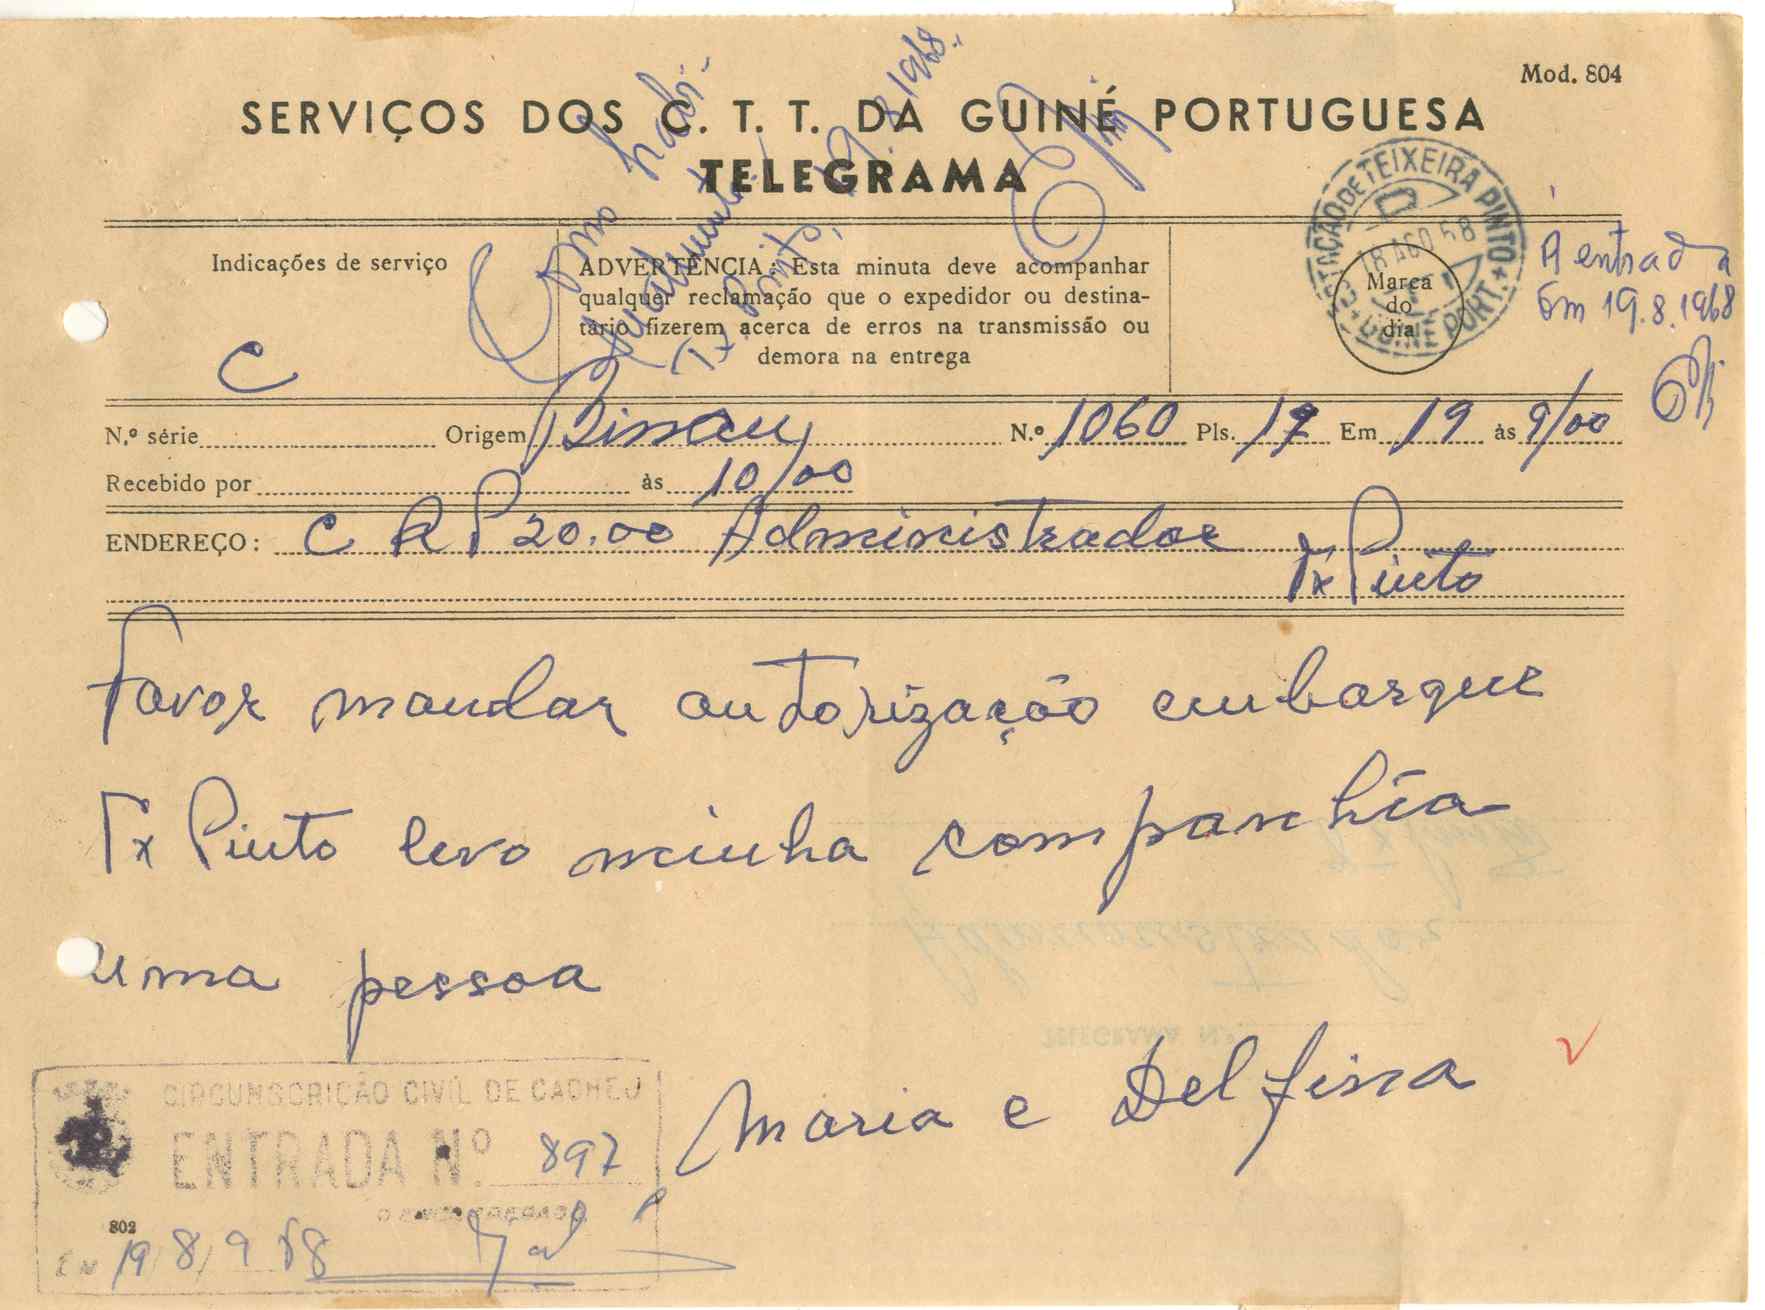 Mod. 804
SERVIÇOS DOS C. T. T. DA GUINÉ PORTUGUESA
TELEGRAMA
Como habi-
tualmente.
Tx. Pinto, 19.8.1968.
Indicações de serviço
C
ADVERTÊNCIA: Esta minuta deve acompanhar
qualquer reclamação que o expedidor ou destina-
tário fizerem acerca de erros na transmissão ou
demora na entrega
ESTAÇÃO DE TEIXEIRA PINTO
18 AGO 68
GUINÉ PORT.
Marca
do
dia
A entrada
Em 19.8.1968
N.º série Origem Bissau N.º 1060 Pls. 17 Em 19 às 9/00
Recebido por às 10/00
ENDEREÇO: C R P 20.00 Administrador
Tx Pinto
Favor mandar autorização embarque
Tx Pinto levo minha companhia
uma pessoa
Maria e Delfina
TELEGRAMA N.º
Administrador
Tx Pinto
CIRCUNSCRIÇÃO CIVIL DE CACHEU
ENTRADA Nº. 897
O ENCARREGADO
802
EM 19/8/968